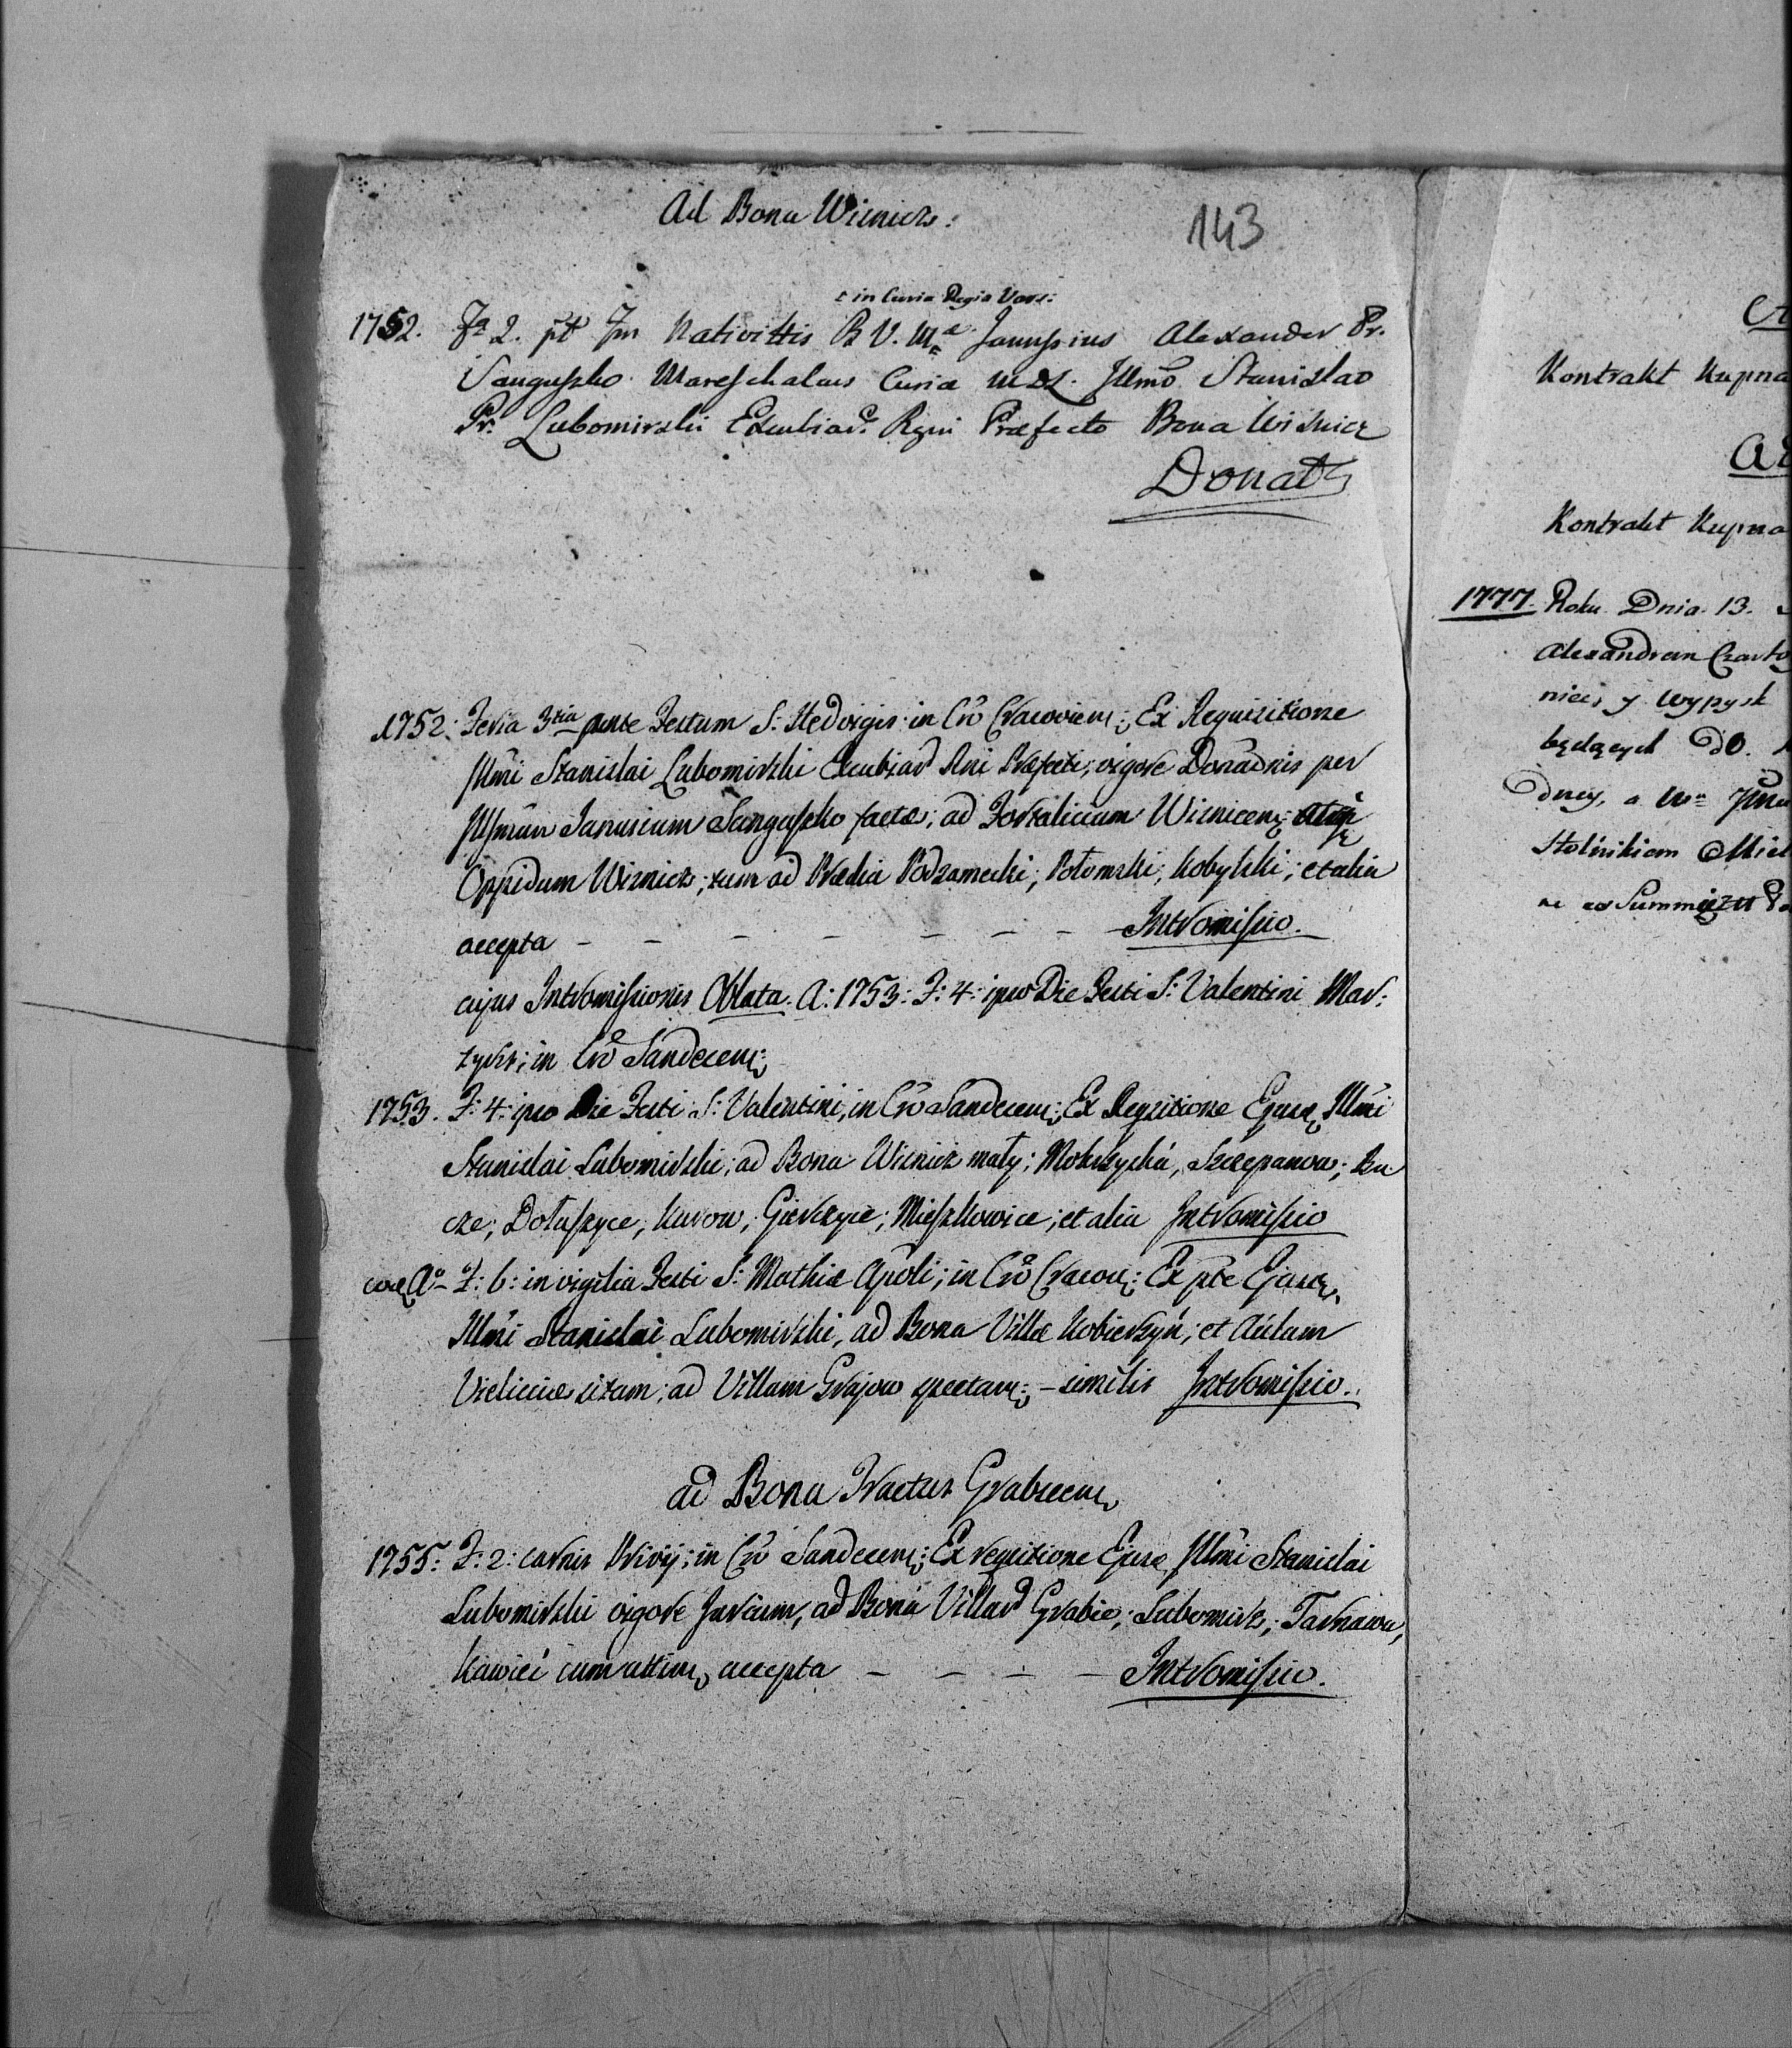 Ad Bona Wisnicz:
143
in Curia Regia Vars:
1752. Fa 2. pt Fm Nativittis B V. Mæ Janussius Alexander Pr.
Sanguszko Mareschalcus Curiæ MDL. Illmo Stanislao
Pr. Lubomirski Excubiar. Regni Præfecto Bona Wisnicz
Donat
1752. Feria 3tia ante Festum S: Hedvigis in Cro Cracovien: Ex Requisitione
Illmi Stanislai Lubomirski Excubiar Rni Præfecti; vigore Donaonis per
Illsmum Janusium Sanguszko factæ; ad Fortalicium Wisnicen: atq
Oppidum Wisnicz; tum ad Prædia Podzamecki; Połomski; Kobylski; et alia
accepta - - - - - - - Intromissio.
cujus Intromissionis Oblata. A: 1753: F: 4: ipso Die Festi S: Valentini Mar:
tyris; in Cro Sandecen:
1753. F: 4: ipso Die Festi S: Valentini, in Cro Sandecen; Ex Reqsitione Ejusd Illmi
Stanislai Lubomirski; ad Bona Wisnicz mały; Mokrzyska, Szczepanow; Bu
cze; Dołuszyce; Kurow; Gierczyce; Mieszkowice; et alia Intromissio
eod Ao F: 6: in vigilia Festi S: Mathiæ Apoli; in Cro Cracov: Ex pte Ejusd
Illmi Stanislai Lubomirski, ad Bona Villæ Kobierzyń; et Aulam
Vieliciæ sitam; ad Villam Grajow spectan: – similis Intromissio.
ad Bona Tractus Grabiecen
1755. F: 2: carnis Privij; in Cro Sandecen; Ex reqsitione Ejusd Illmi Stanislai
Lubomirski vigore Jurium, ad Bona Villar Grabie; Lubomirz; Tarnawa,
Kawiec cum attin accepta - - - - Intromissio.
Kontrakt Kupna
Kontrakt Kupna
1777. Roku Dnia 13.
Alexandrem Czarto
niec, y wypysk
będących do.
Stolnikiem